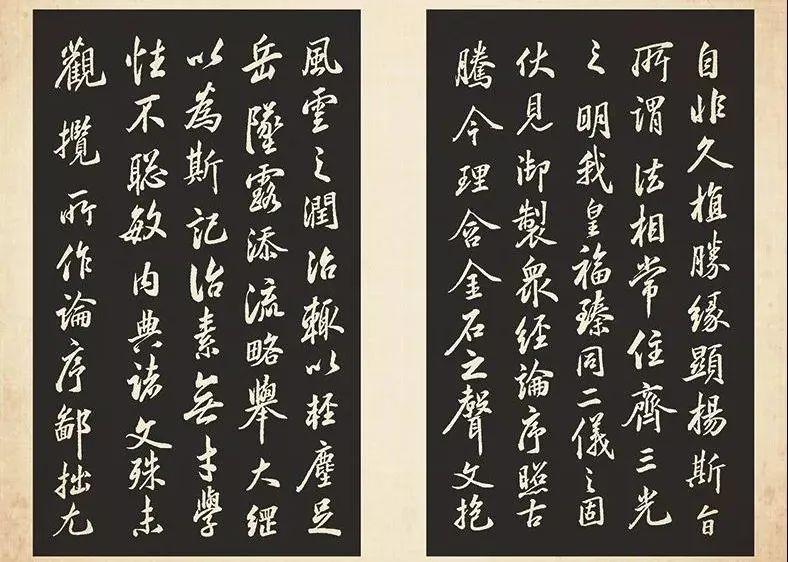 自非久植勝緣顯揚斯旨
所謂法相常住齊三光
之明我皇福臻同二儀之固
伏見御製眾經論序照古
騰今理含金石之聲文抱
風雲之潤治輒以輕塵足
岳墜露添流略舉大綱
以為斯記治素無才學
性不聰敏內典諸文殊未
觀攬所作論序鄙拙尤